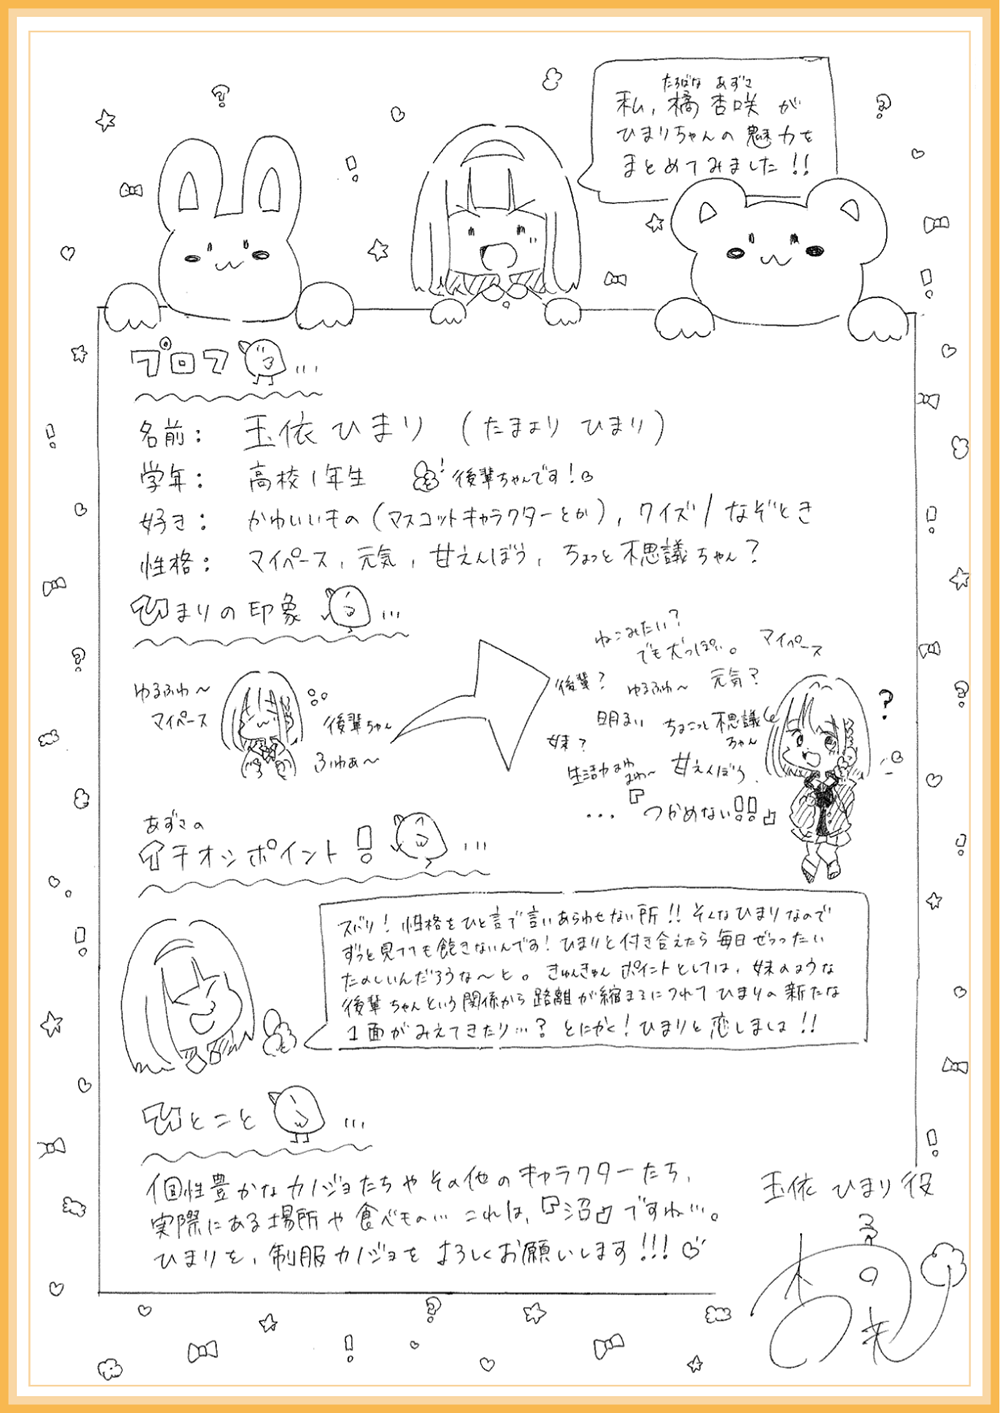 たちばな あずさ
私、橘 杏咲 が
ひまりちゃんの 魅力を
まとめてみました!!
プロフ ...
名前: 玉依 ひまり (たまより ひまり)
学年: 高校1年生 後輩ちゃんです!
好き: かわいいもの(マスコットキャラクターとか), クイズ/なぞとき
性格: マイペース, 元気, 甘えんぼう, ちょっと不思議ちゃん?
ひまりの印象 ...
ゆるふわ〜
マイペース
後輩ちゃん
ふわぁ〜
ねこみたい?
でも犬っぽい。
マイペース
後輩?
ゆるふわ〜
元気?
明るい
ちょこっと不思議
ちゃん
妹?
甘えんぼう
... 『つかめない!!』
あずさの
イチオシポイント! ...
ズバリ! 性格をひと言で言いあらわせない所!! そんなひまりなので
ずっと見てても飽きないんです! ひまりと付き合えたら毎日ぜっったい
たのしいんだろうな〜と。 きゅんきゅん ポイントとしては、妹のような
後輩ちゃんという関係から 距離が縮まるにつれて ひまりの新たな
1面がみえてきたり…? とにかく! ひまりと恋しましょ!!
ひとこと ...
個性豊かなカノジョたちや その他のキャラクターたち、
実際にある場所や食べもの… これは、『沼』ですね…。
ひまりを、制服カノジョを よろしくお願いします!!!
玉依 ひまり 役